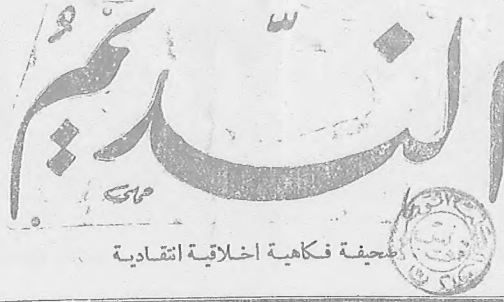 النديم
صحيفة فكاهية اخلاقية انتقادية